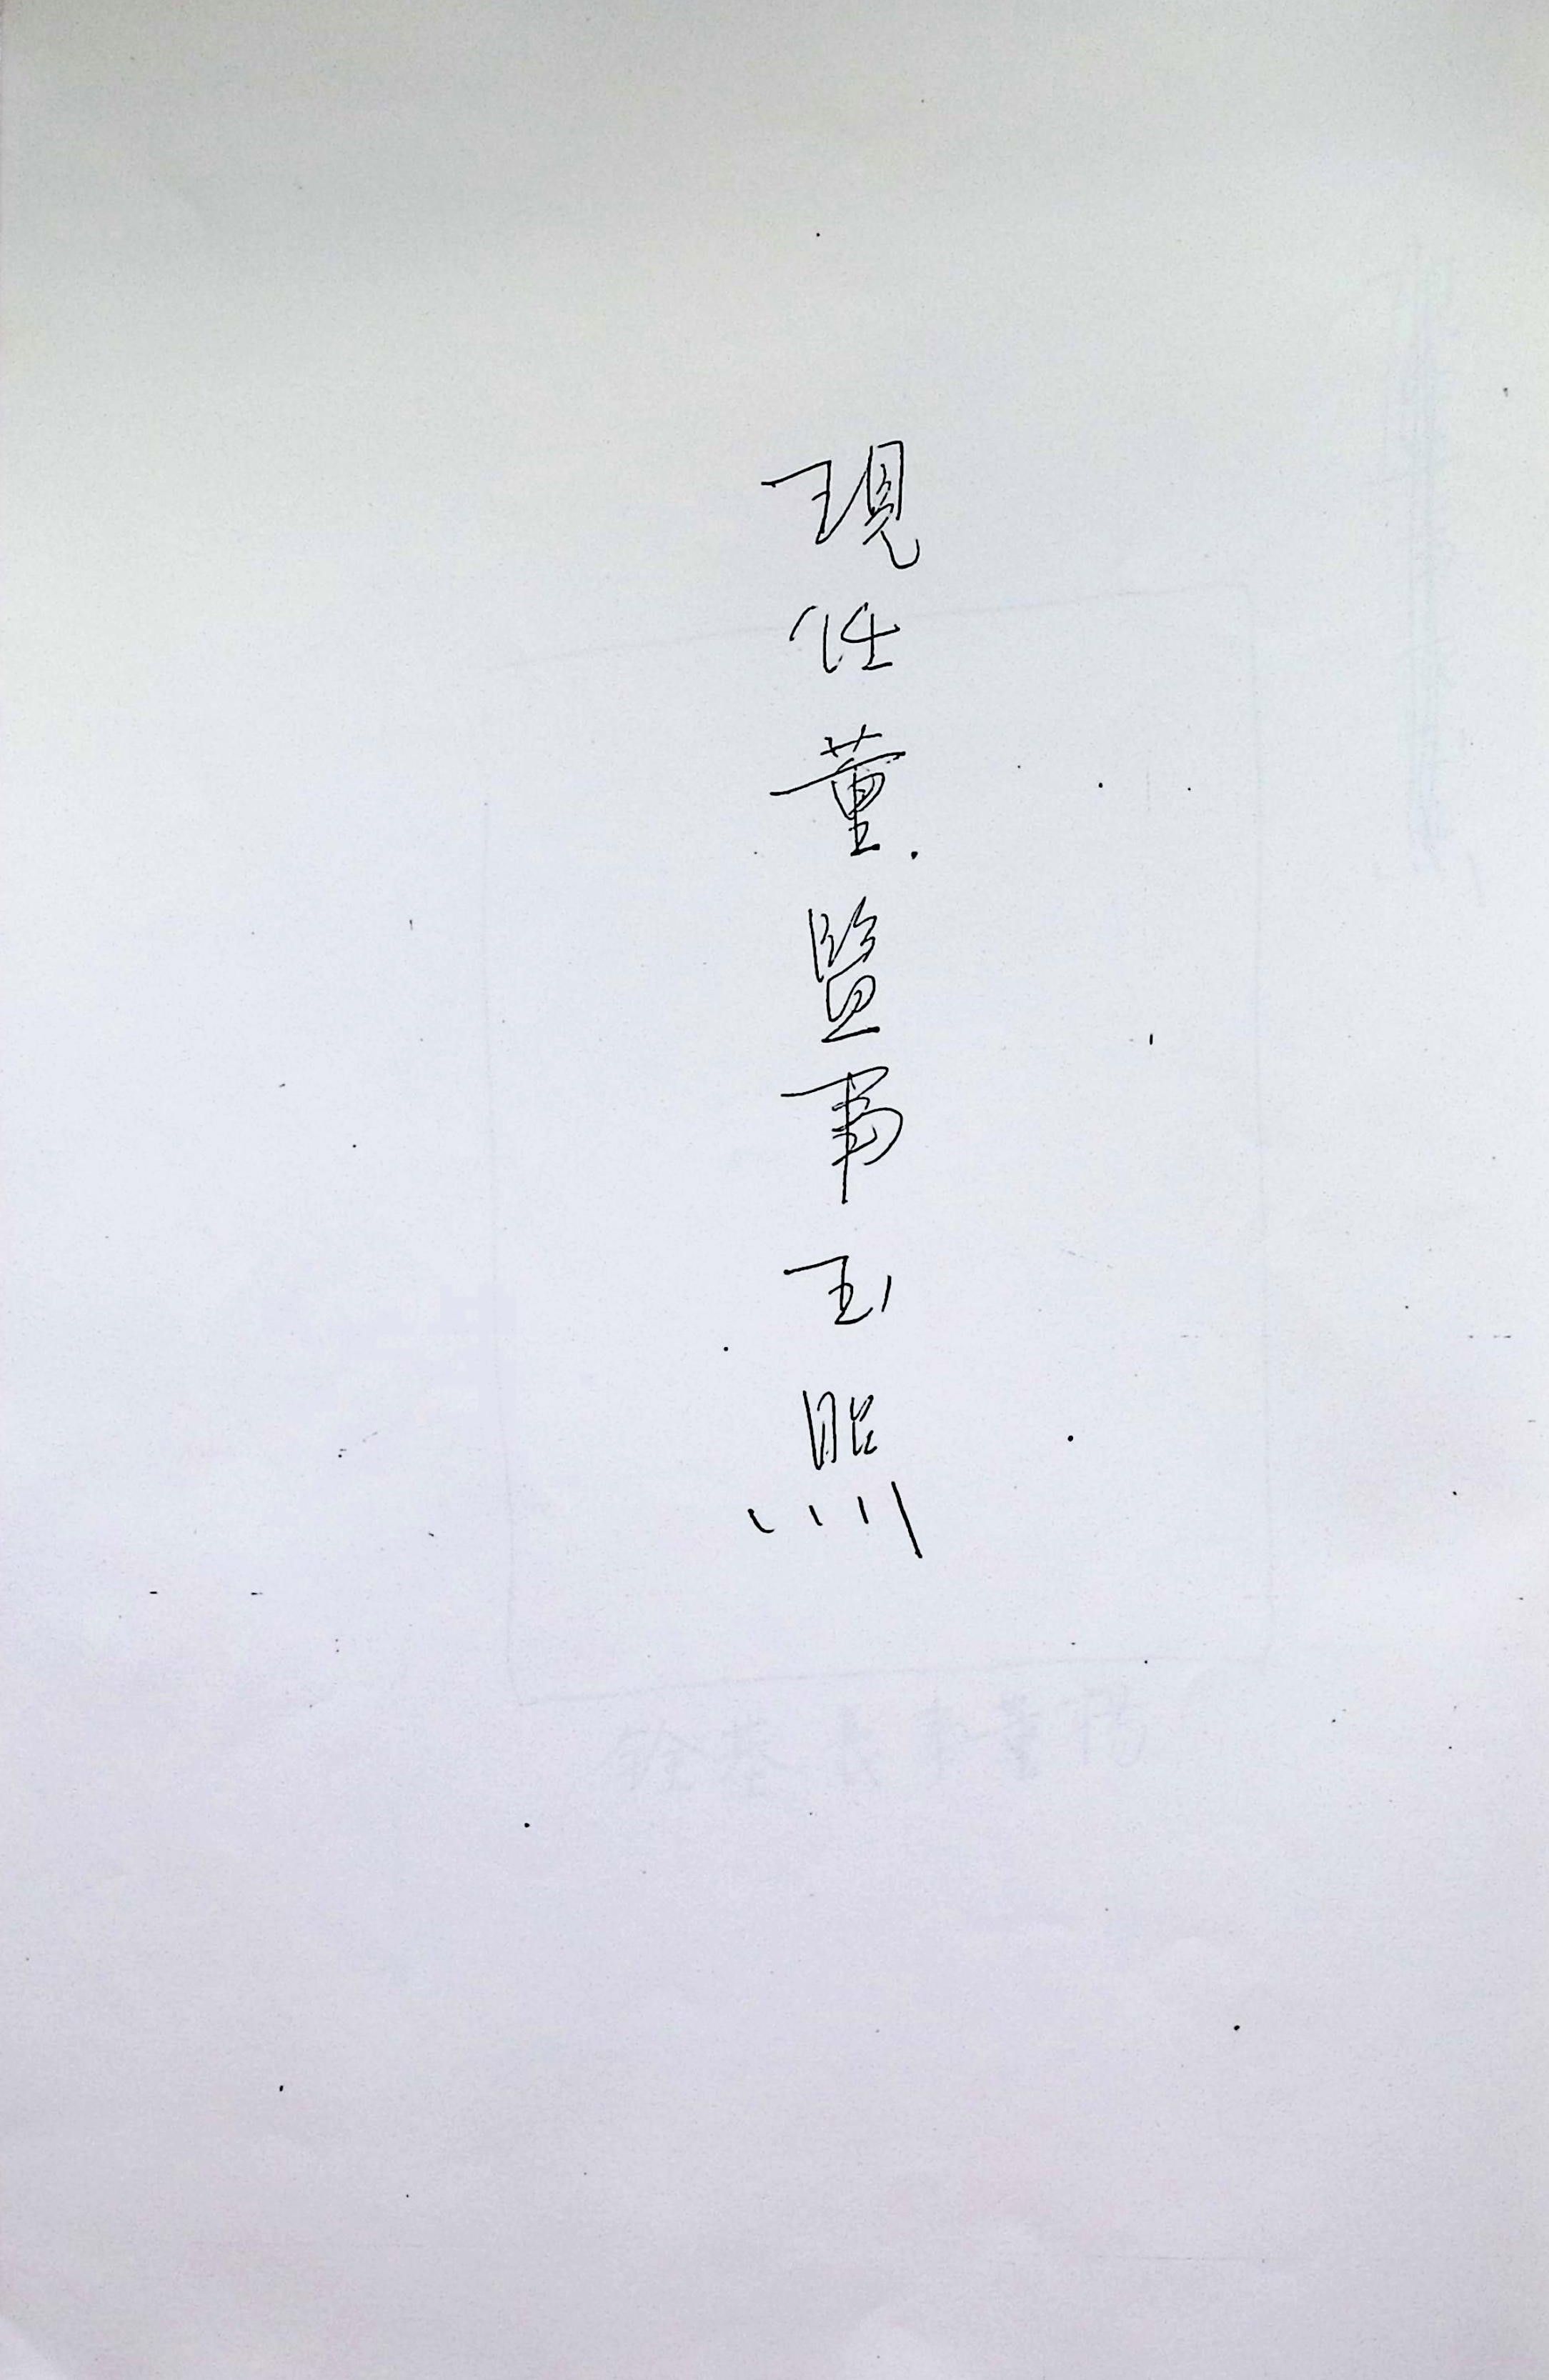 現任董監事玉照